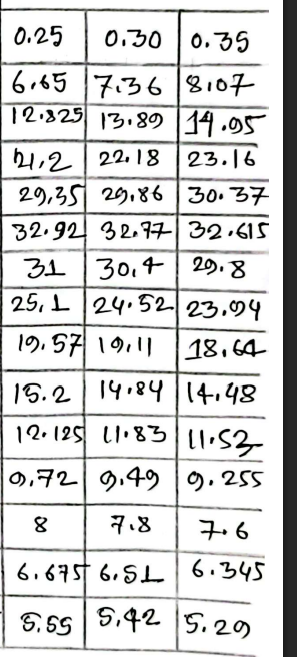 0.25 0.30 0.35
6.65 7.36 8.07
12.825 13.89 14.95
21,2 22.18 23.16
29,35 29.86 30.37
32.92 32.77 32.615
31 30,4 29.8
25,1 24.52 23.94
19.57 19,11 18.64
15.2 14.84 14.48
12.125 11.83 11.53
9.72 9.49 9.255
8 7.8 7.6
6.675 6.51 6.345
5.55 5.42 5.29